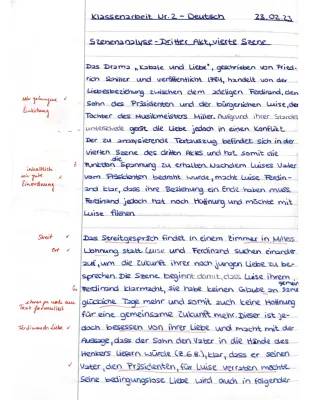 Klassenarbeit Nr. 2 - Deutsch 23.02.23
Szenenanalyse - Dritter Akt, vierte Szene
Das Drama „Kabale und Liebe", geschrieben von Fried-
rich Schiller und veröffentlicht 1784, handelt von der
Liebesbeziehung zwischen dem adeligen Ferdinand, dem
Sohn des Präsidenten und der bürgerlichen Luise, der
Tochter des Musikmeisters Miller. Aufgrund ihrer Standes
unterschiede gerät die Liebe jedoch in einen Konflikt.
Der zu analysierende Textauszug befindet sich in der
vierten Szene des dritten Aktes und hat somit die
die
Funktion Spannung zu erhalten. Nachdem Luises Vater
vom Präsidenten bedroht wurde, macht Luise Ferdin-
and klar, dass ihre Beziehung ein Ende haben muss.
Ferdinand jedoch hat noch Hoffnung und möchte mit
Luise fliehen.
sehr gelungene
Einleitung
inhaltlich
gute
Einordnung
Streit
Ort
Das Streitgespräch findet in einem Zimmer in Millers
Wohnung statt. Luise und Ferdinand suchen einander
auf, um die Zukunft ihrer noch jungen Liebe zu be-
sprechen. Die Szene beginnt damit, dass Luise ihrem
Ferdinand klarmacht, sie habe keinen Glaube an
gemein
glückliche Tage mehr und somit auch keine Hoffnung
für eine gemeinsame Zukunft mehr. Dieser ist je-
doch besessen von ihrer Liebe und macht mit der
Aussage, dass der Sohn den Vater in die Hände des
Henkers liefern würde (Z.6.8), klar, dass er seinen
Vater, den Präsidenten, für Luise verraten möchte.
Seine bedingungslose Liebe wird auch in folgender
nah am
Text formuliert
Ferdinands Liebe